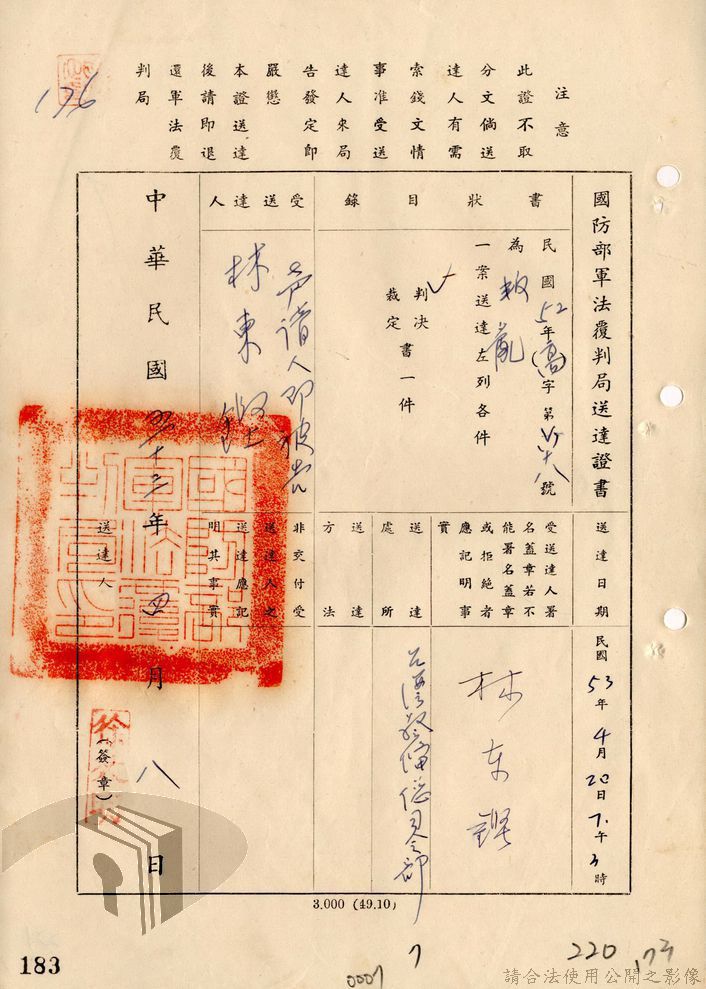 注意
此證不取
分文倘送
達人有需
索錢文情
事准受送
達人來局
告發定即
嚴懲
本證送達
後請即退
還軍法覆
判局
176
國防部軍法覆判局送達證書
書狀目錄
民國52年(高)字第 號
為叛亂
一案送達左列各件
判決
裁定書一件
受送達人
聲請人即被告
林東鏗
中華民國五十三年四月八日
送達日期
民國53年4月20日下午3時
受送達人署
名蓋章若不
能署名蓋章
或拒絕者
應記明事
實
林东鏗
送達處所
台灣警備總司令部
送達方法
非交付受
送達人之
送達應記
明其事實
送達人
(簽章)
國防部軍法覆判局印
3.000 (49.10)
183
0007
7
220
173
請合法使用公開之影像